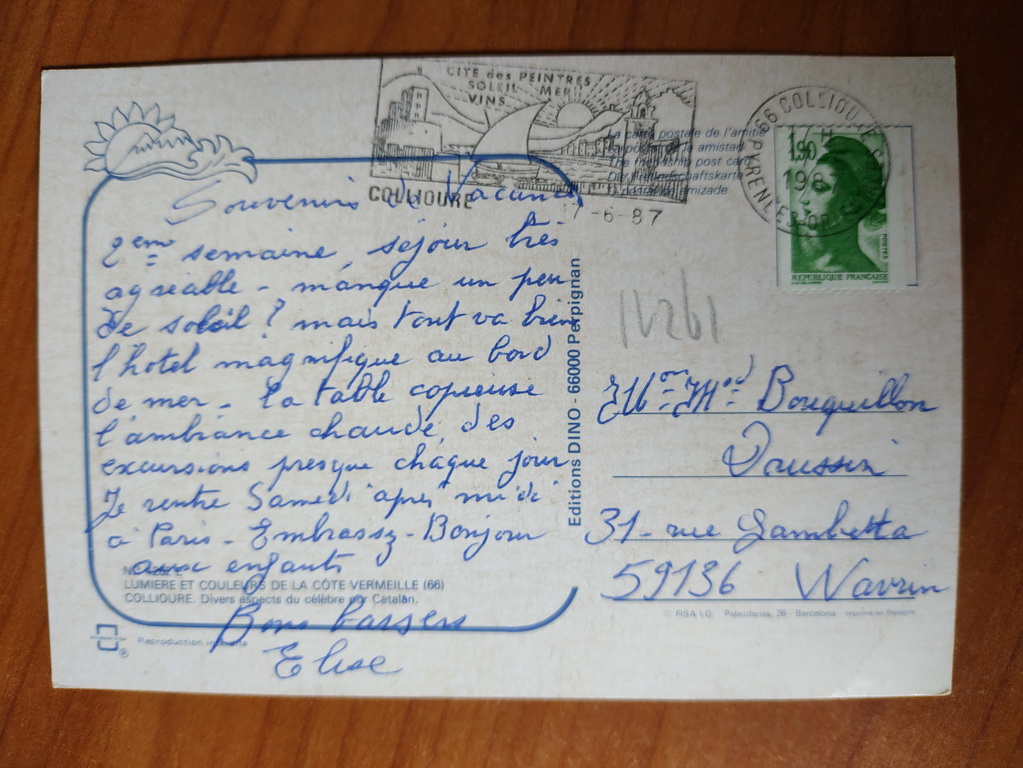 CITE des PEINTRES
SOLEIL MER
VINS
COLLIOURE
17-6-87
66 COLLIOURE
PYRENEES ORIENTALES
17 H
198
1,90
POSTES
REPUBLIQUE FRANCAISE
La carte postale de l'amitié
La postal de la amistad
The friendship post card
Die Freundschaftskarte
O postal da amizade
Souvenirs de Vacances
2eme semaine, séjour très
agréable - manque un peu
de soleil ? mais tout va bien
l'hotel magnifique au bord
de mer - la table copieuse
l'ambiance chaude, des
excursions presque chaque jour
Je rentre Samedi après midi
à Paris - Embrassez - Bonjour
aux enfants
Bons baisers
Elise
LUMIERE ET COULEURS DE LA CÔTE VERMEILLE (66)
COLLIOURE. Divers aspects du célèbre port Catalan.
Reproduction interdite
Editions DINO - 66000 Perpignan
11261
Mr Mme Bouquillon
Daussin
31 - rue Gambetta
59136 Wavrin
© FISA I.G. Palaudarias, 26 - Barcelona - Imprimé en Espagne